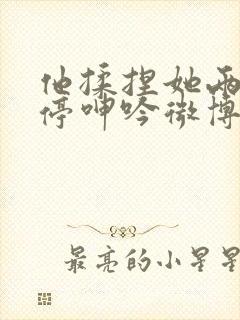 他揉捏她两
停呻吟微博
最亮的小星星